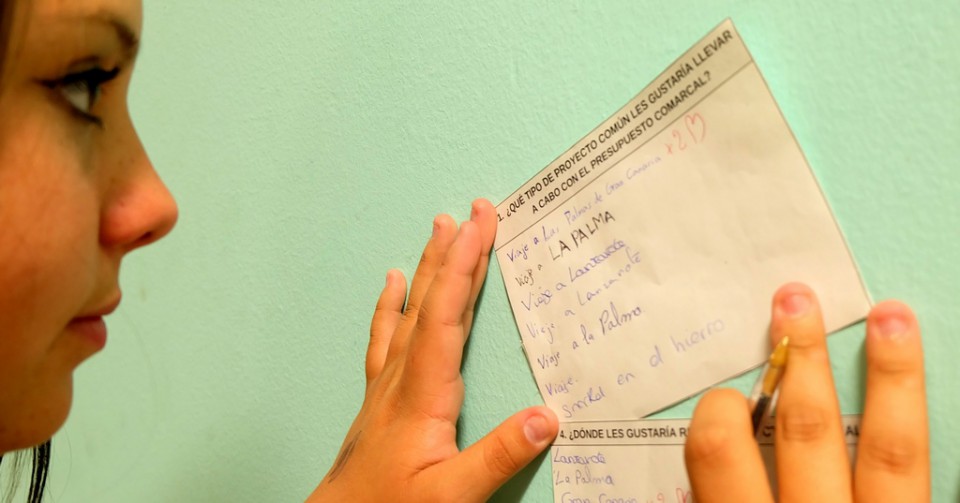 1. ¿QUÉ TIPO DE PROYECTO COMÚN LES GUSTARÍA LLEVAR
A CABO CON EL PRESUPUESTO COMARCAL?
Viaje a Las Palmas de Gran Canaria x2
Viaje a LA PALMA
Viaje a Lanzarote
Viaje a Lanzarote
Viaje a la Palma.
Viaje.
snorkel en el hierro
4. ¿DÓNDE LES GUSTARÍA
Lanzarote
La Palma
Gran Canaria x2